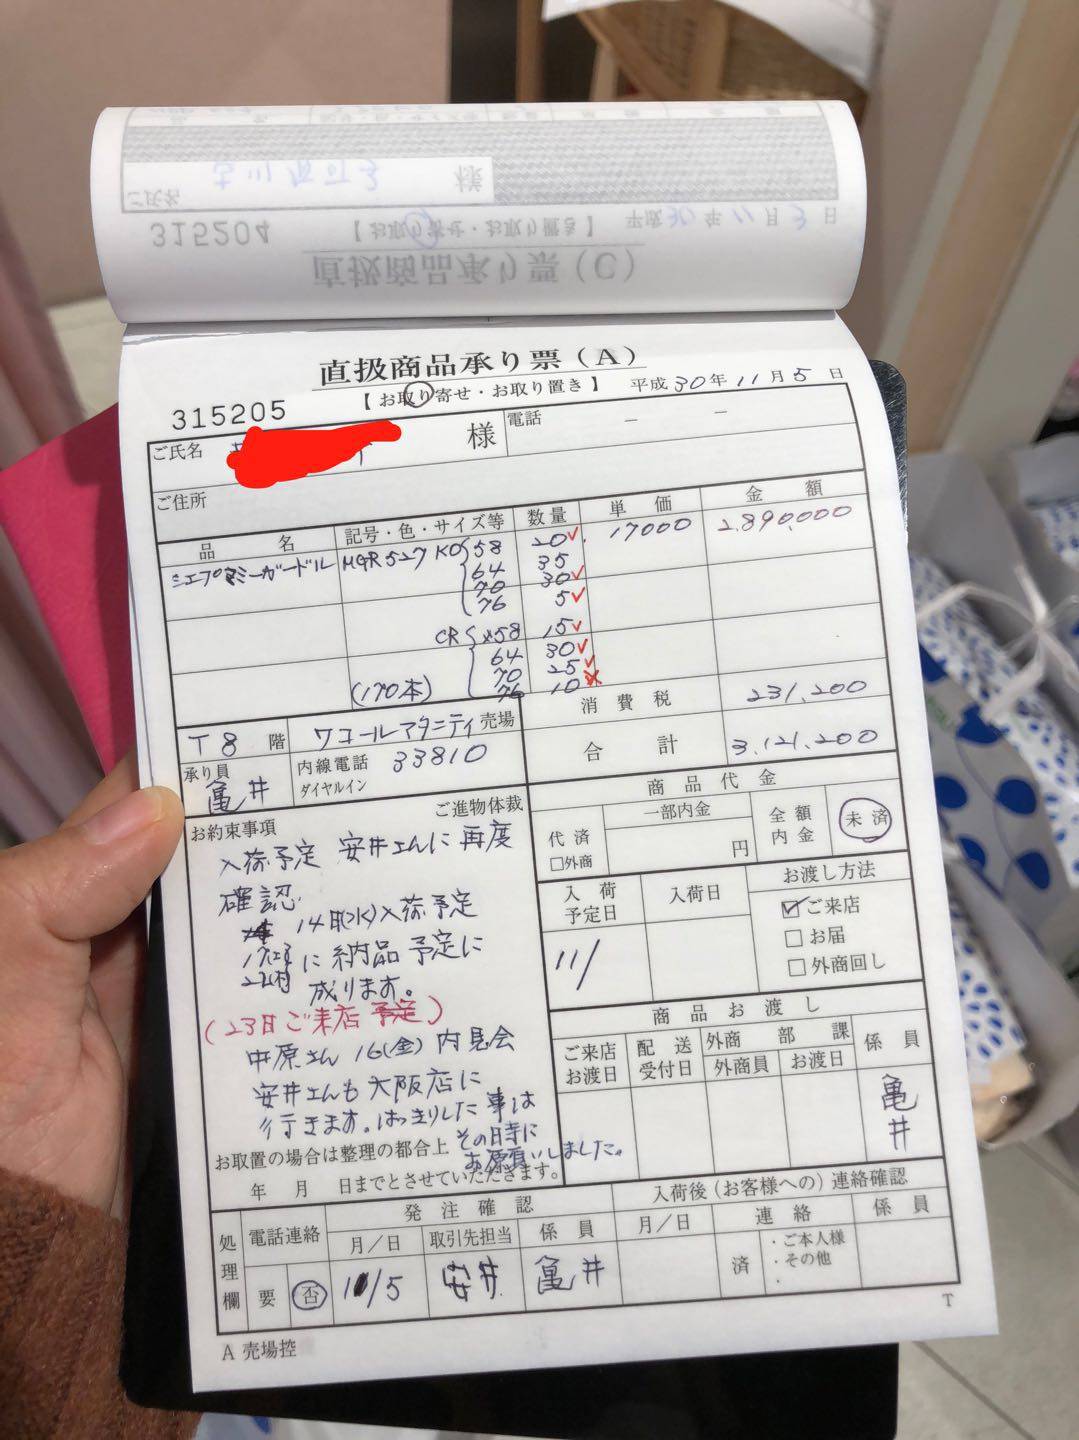 315204
【お取り寄せ・お取り置き】 平成30年11月3日
直扱商品承り票(C)
ご氏名 様
直扱商品承り票(A)
【お取り寄せ・お取り置き】 平成30年11月5日
315205
ご氏名 様 電話 － －
ご住所
品名 記号・色・サイズ等 数量 単価 金額
シェープマミーガードル MGR527 KO 58 20 17000 2,890,000
64 35
70 30
76 5
CR 58 15
64 30
70 25
(170本) 76 10
消費税 231,200
合計 3,121,200
T8階 ワコールマタニティ売場
承り員 亀井 内線電話 ダイヤルイン 33810
お約束事項 ご進物体裁
入荷予定 安井さんに再度
確認
14日(水)入荷予定
に納品予定に
成ります。
(23日ご来店予定)
中原さん 16(金) 内見会
安井さんも大阪店に
行きます。はっきりした事は
その日時に
お願いしました。
お取置の場合は整理の都合上
年 月 日までとさせていただきます。
商品代金
代済 □外商 一部内金 円 全額内金 未済
入荷予定日 入荷日 お渡し方法
11/
☑ご来店
□お届
□外商回し
商品お渡し
ご来店お渡日 配送受付日 外商部課 外商員 お渡日 係員
亀井
処理欄 電話連絡 発注確認 入荷後(お客様への)連絡確認
月／日 取引先担当 係員 月／日 連絡 係員
要 否 11/5 安井 亀井 済 ・ご本人様
・その他
・
T
A 売場控